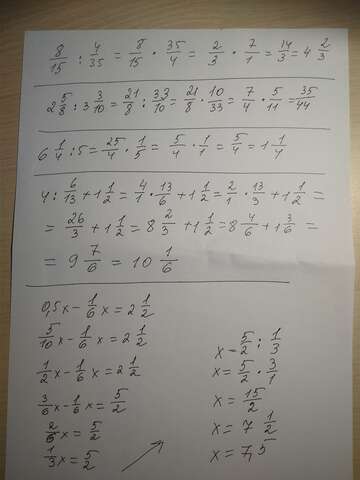 8/15 : 4/35 = 8/15 · 35/4 = 2/3 · 7/1 = 14/3 = 4 2/3
2 5/8 : 3 3/10 = 21/8 : 33/10 = 21/8 · 10/33 = 7/4 · 5/11 = 35/44
6 1/4 : 5 = 25/4 · 1/5 = 5/4 · 1/1 = 5/4 = 1 1/4
4 : 6/13 + 1 1/2 = 4/1 · 13/6 + 1 1/2 = 2/1 · 13/3 + 1 1/2 =
= 26/3 + 1 1/2 = 8 2/3 + 1 1/2 = 8 4/6 + 1 3/6 =
= 9 7/6 = 10 1/6
0,5x - 1/6 x = 2 1/2
5/10 x - 1/6 x = 2 1/2
1/2 x - 1/6 x = 2 1/2
3/6 x - 1/6 x = 5/2
2/6 x = 5/2
1/3 x = 5/2
x = 5/2 : 1/3
x = 5/2 · 3/1
x = 15/2
x = 7 1/2
x = 7,5